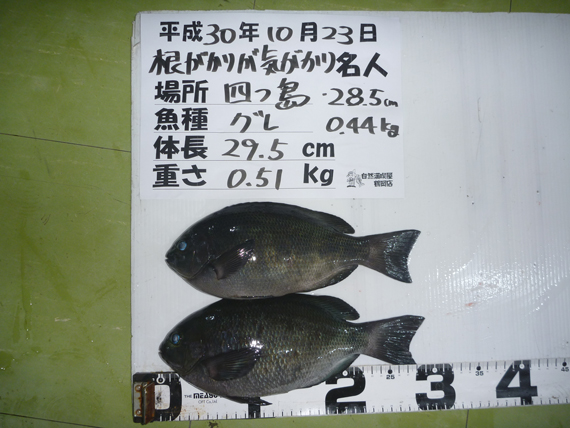 平成30年10月23日
根がかりが気がかり名人
場所 四つ島 ・28.5cm
魚種 グレ 0.44kg
体長 29.5 cm
重さ 0.51 kg
鶴岡店
0 2 3 4
25 35 45
THE MEASURE